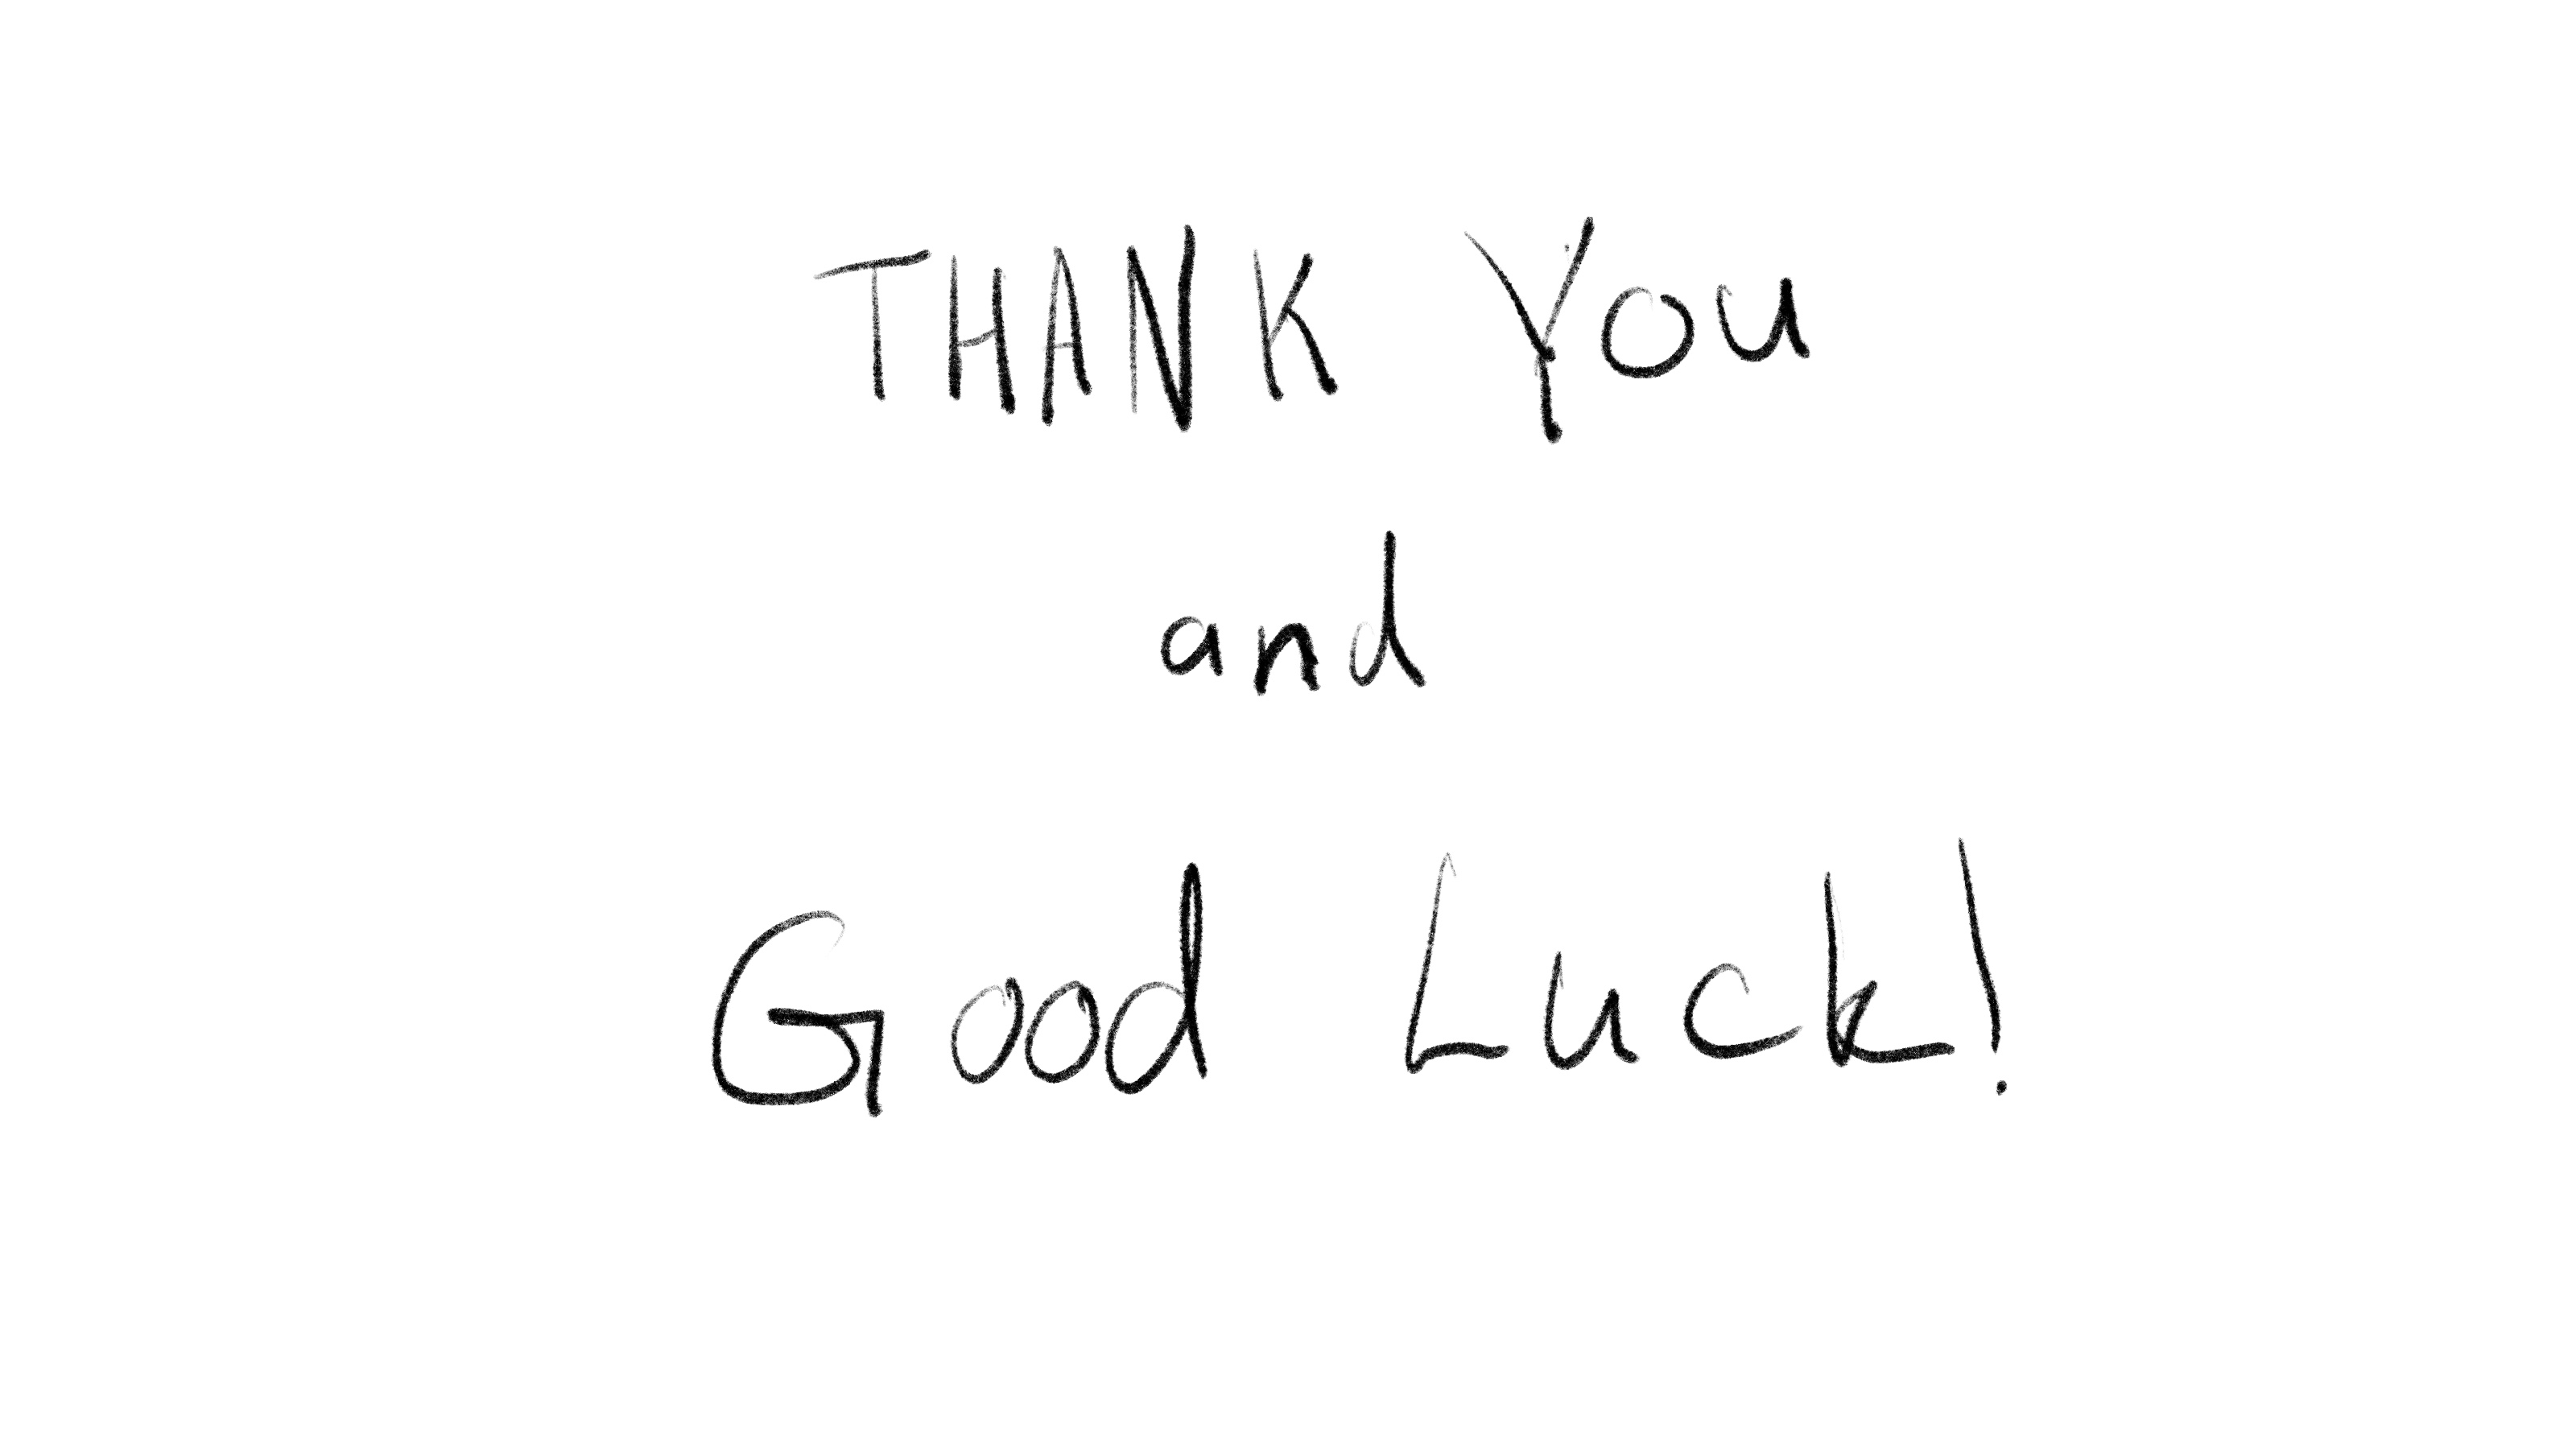 THANK YOU
and
Good Luck!